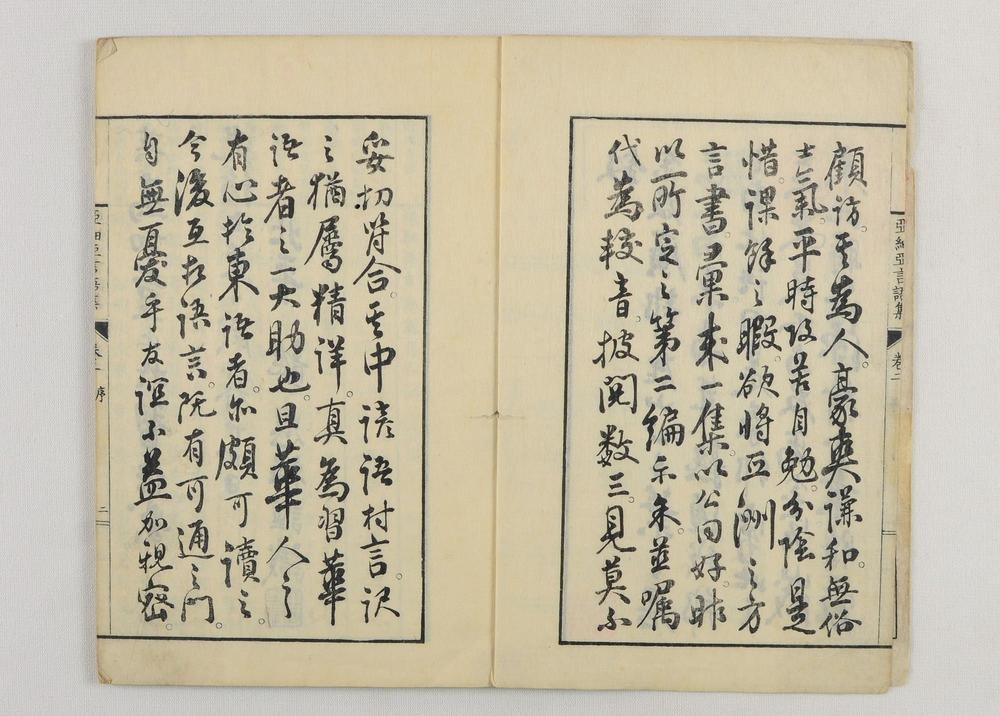 亞細亞言語集 卷二
顧訪。其為人。豪爽謙和。無俗
士氣。平時攻苦自勉。分陰是
惜。課餘之暇。欲將亞洲之方
言書彙成一集。以公同好。昨
以所定之第二編示余。並囑
代為較音。披閱数三。見莫不
妥切符合。其中諺語村言。訳
之猶屬精詳。真為習華
語者之一大助也。且華人之
有心於東語者。亦頗可讀之。
今後互相語言。既有可通之門。
自無憂乎友誼不益加親密。
亞細亞言語集 卷二 序 二